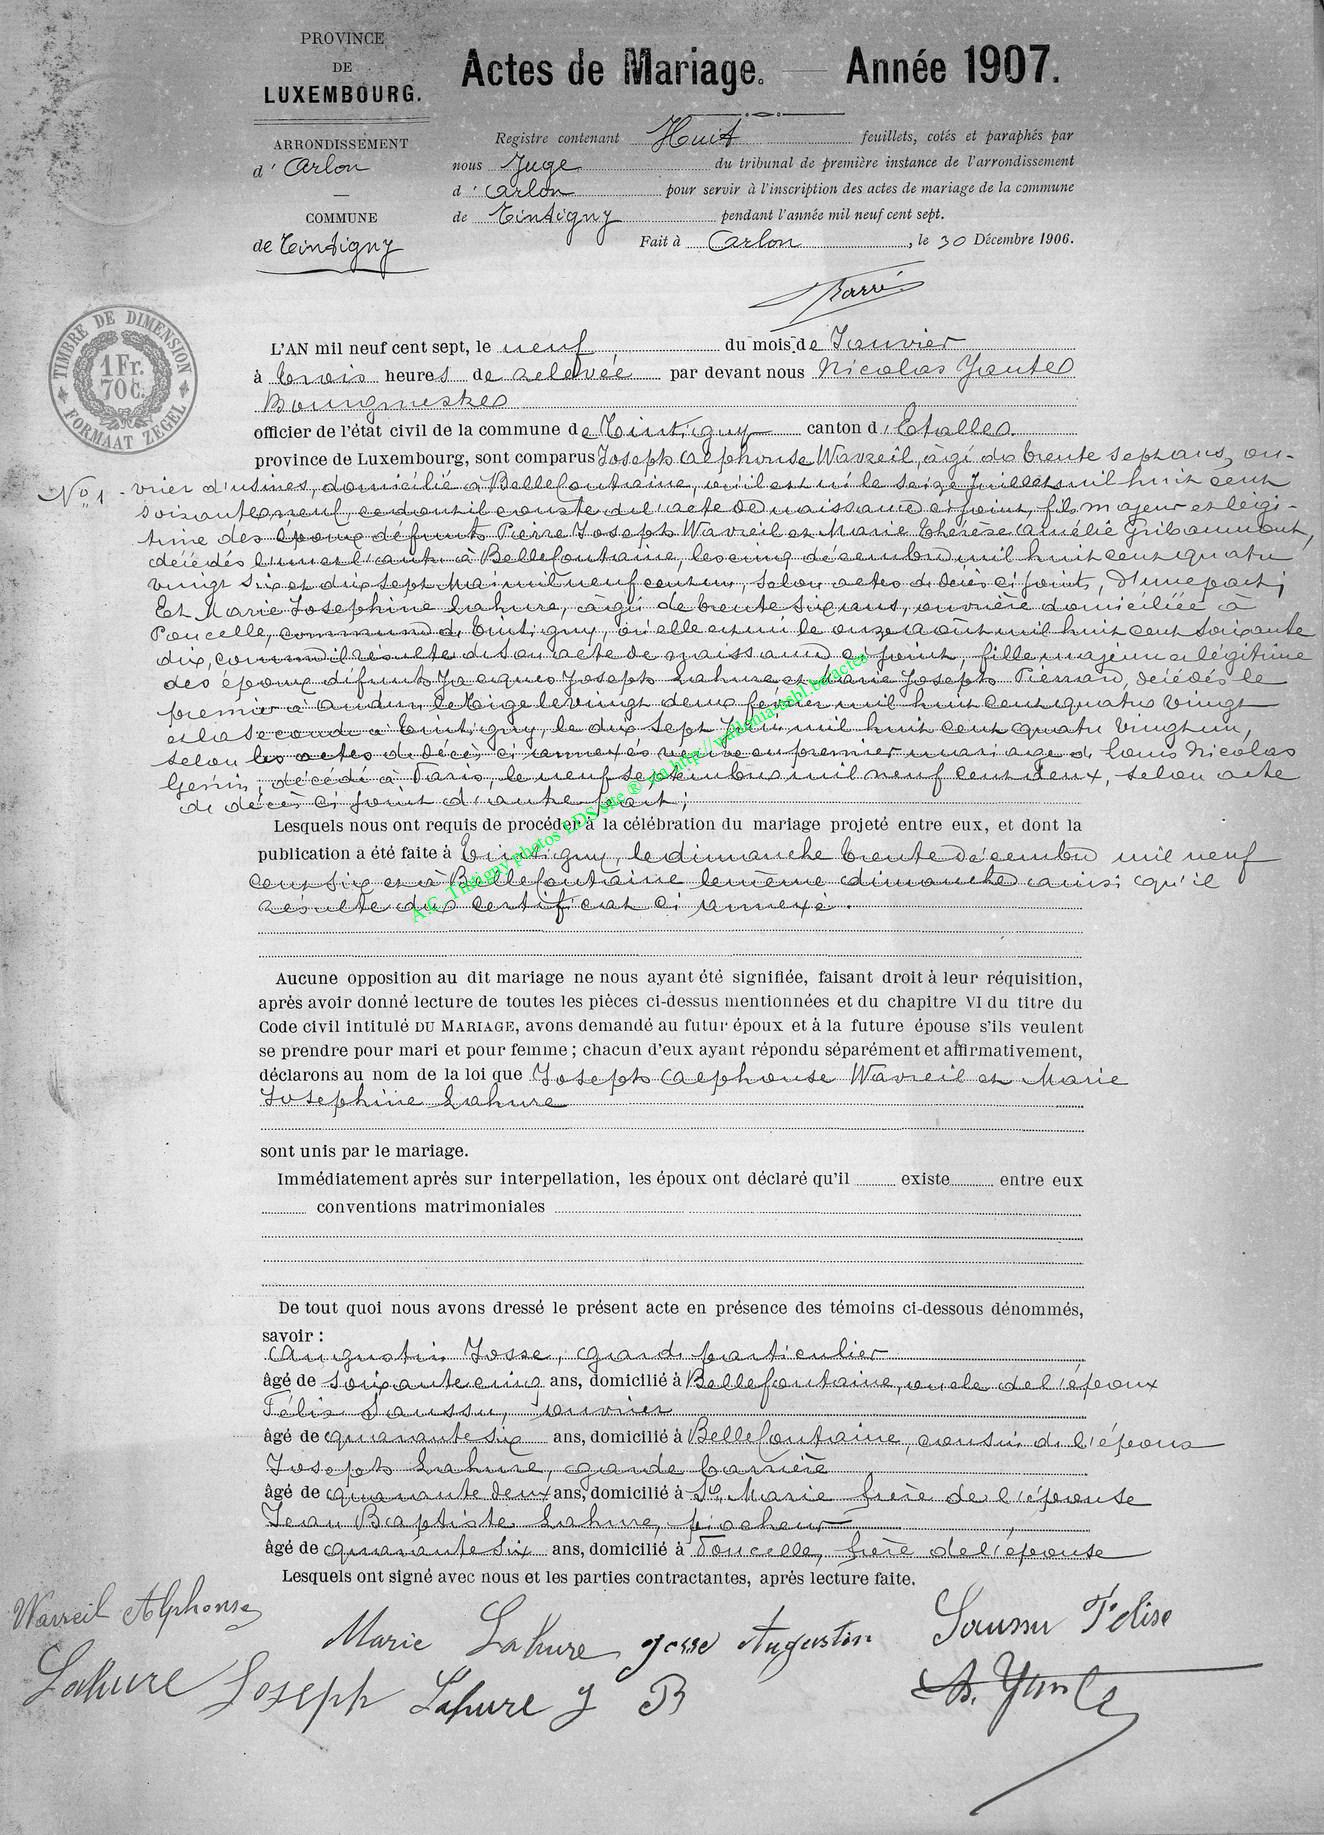 PROVINCE
DE
LUXEMBOURG.
Actes de Mariage. — Année 1907.
ARRONDISSEMENT
d' Arlon
COMMUNE
de Tintigny
Registre contenant Huit feuillets, cotés et paraphés par
nous Juge du tribunal de première instance de l'arrondissement
d' Arlon pour servir à l'inscription des actes de mariage de la commune
de Tintigny pendant l'année mil neuf cent sept.
Fait à Arlon, le 30 Décembre 1906.
TIMBRE DE DIMENSION
1 Fr.
70 C.
FORMAAT ZEGEL
L'AN mil neuf cent sept, le neuf du mois de Janvier
à trois heures de relevée par devant nous Nicolas Yante
Bourgmestre
officier de l'état civil de la commune de Tintigny canton d'Etalle
province de Luxembourg, sont comparus Joseph Alphonse Wavreil, âgé de trente sept ans, ou-
No 1. vrier d'usines, domicilié à Bellefontaine, où il est né le seize Juillet mil huit cent
soixante neuf, ce dont il conste de l'acte de naissance ci joint, fils majeur et légi-
time des époux défunts Pierre Joseph Wavreil et Marie Thérèse Amélie Gribaumont,
décédés l'un et l'autre à Bellefontaine, les cinq décembre mil huit cent quatre
vingt six et dix sept Mai mil neuf cent un, selon actes de décès ci joints, d'une part;
Et Marie Josephine Lahure, âgée de trente six ans, ouvrière domiciliée à
Poncelle, commune de Tintigny, où elle est née le onze août mil huit cent soixante
dix, comme il résulte de son acte de naissance ci joint, fille majeure légitime
des époux défunts Jacques Joseph Lahure et Marie Joseph Pierrard, décédés le
premier à Audun le Tige le vingt deux février mil huit cent quatre vingt
et la seconde à Tintigny, le dix sept Juin mil huit cent quatre vingt un,
selon les actes de décès ci annexés veuve en premier mariage de Louis Nicolas
Génin, décédé à Paris, le neuf septembre mil neuf cent deux, selon acte
de décès ci joint d'autre part;
Lesquels nous ont requis de procéder à la célébration du mariage projeté entre eux, et dont la
publication a été faite à Tintigny, le dimanche trente décembre mil neuf
cent six et à Bellefontaine le même dimanche ainsi qu'il
résulte du certificat ci annexé.
A.C. Tintigny photos LDS site ® via http://wallonia-asbl.be/actes
Aucune opposition au dit mariage ne nous ayant été signifiée, faisant droit à leur réquisition,
après avoir donné lecture de toutes les pièces ci-dessus mentionnées et du chapitre VI du titre du
Code civil intitulé DU MARIAGE, avons demandé au futur époux et à la future épouse s'ils veulent
se prendre pour mari et pour femme ; chacun d'eux ayant répondu séparément et affirmativement,
déclarons au nom de la loi que Joseph Alphonse Wavreil et Marie
Josephine Lahure
sont unis par le mariage.
Immédiatement après sur interpellation, les époux ont déclaré qu'il existe entre eux
conventions matrimoniales
De tout quoi nous avons dressé le présent acte en présence des témoins ci-dessous dénommés,
savoir :
Augustin Josse, garde particulier
âgé de soixante cinq ans, domicilié à Bellefontaine, oncle de l'époux
Félix Saussu, ouvrier
âgé de quarante six ans, domicilié à Bellefontaine, cousin de l'époux
Joseph Lahure, garde barrière
âgé de quarante deux ans, domicilié à Ste Marie frère de l'épouse
Jean Baptiste Lahure, piocheur
âgé de quarante six ans, domicilié à Poncelle, frère de l'épouse
Lesquels ont signé avec nous et les parties contractantes, après lecture faite.
Wavreil Alphonse
Marie Lahure
Josse Augustin
Saussu Félise
Lahure Joseph
Lahure J B
N. Yante